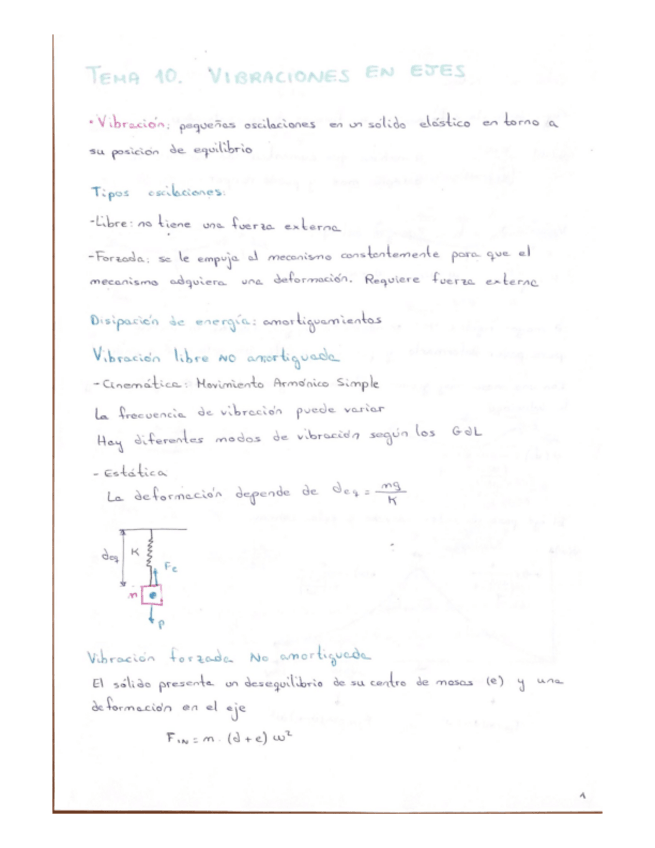 TEMA 10. VIBRACIONES EN EJES
• Vibración: pequeñas oscilaciones en un sólido elástico en torno a
su posición de equilibrio
Tipos oscilaciones:
-Libre: no tiene una fuerza externa
-Forzada: se le empuja al mecanismo constantemente para que el
mecanismo adquiera una deformación. Requiere fuerza externa
Disipación de energía: amortiguamientos
Vibración libre NO amortiguada
- Cinemática: Movimiento Armónico Simple
La frecuencia de vibración puede variar
Hay diferentes modos de vibración según los GdL
- Estática
La deformación depende de deq = mg/K
deq K Fe
m
P
Vibración forzada NO amortiguada
El sólido presenta un desequilibrio de su centro de masas (e) y una
deformación en el eje
FIN = m · (d + e) ω²
1